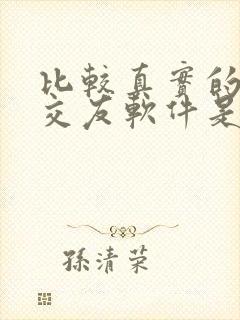 比較真實的
交友軟件是
孫清荣